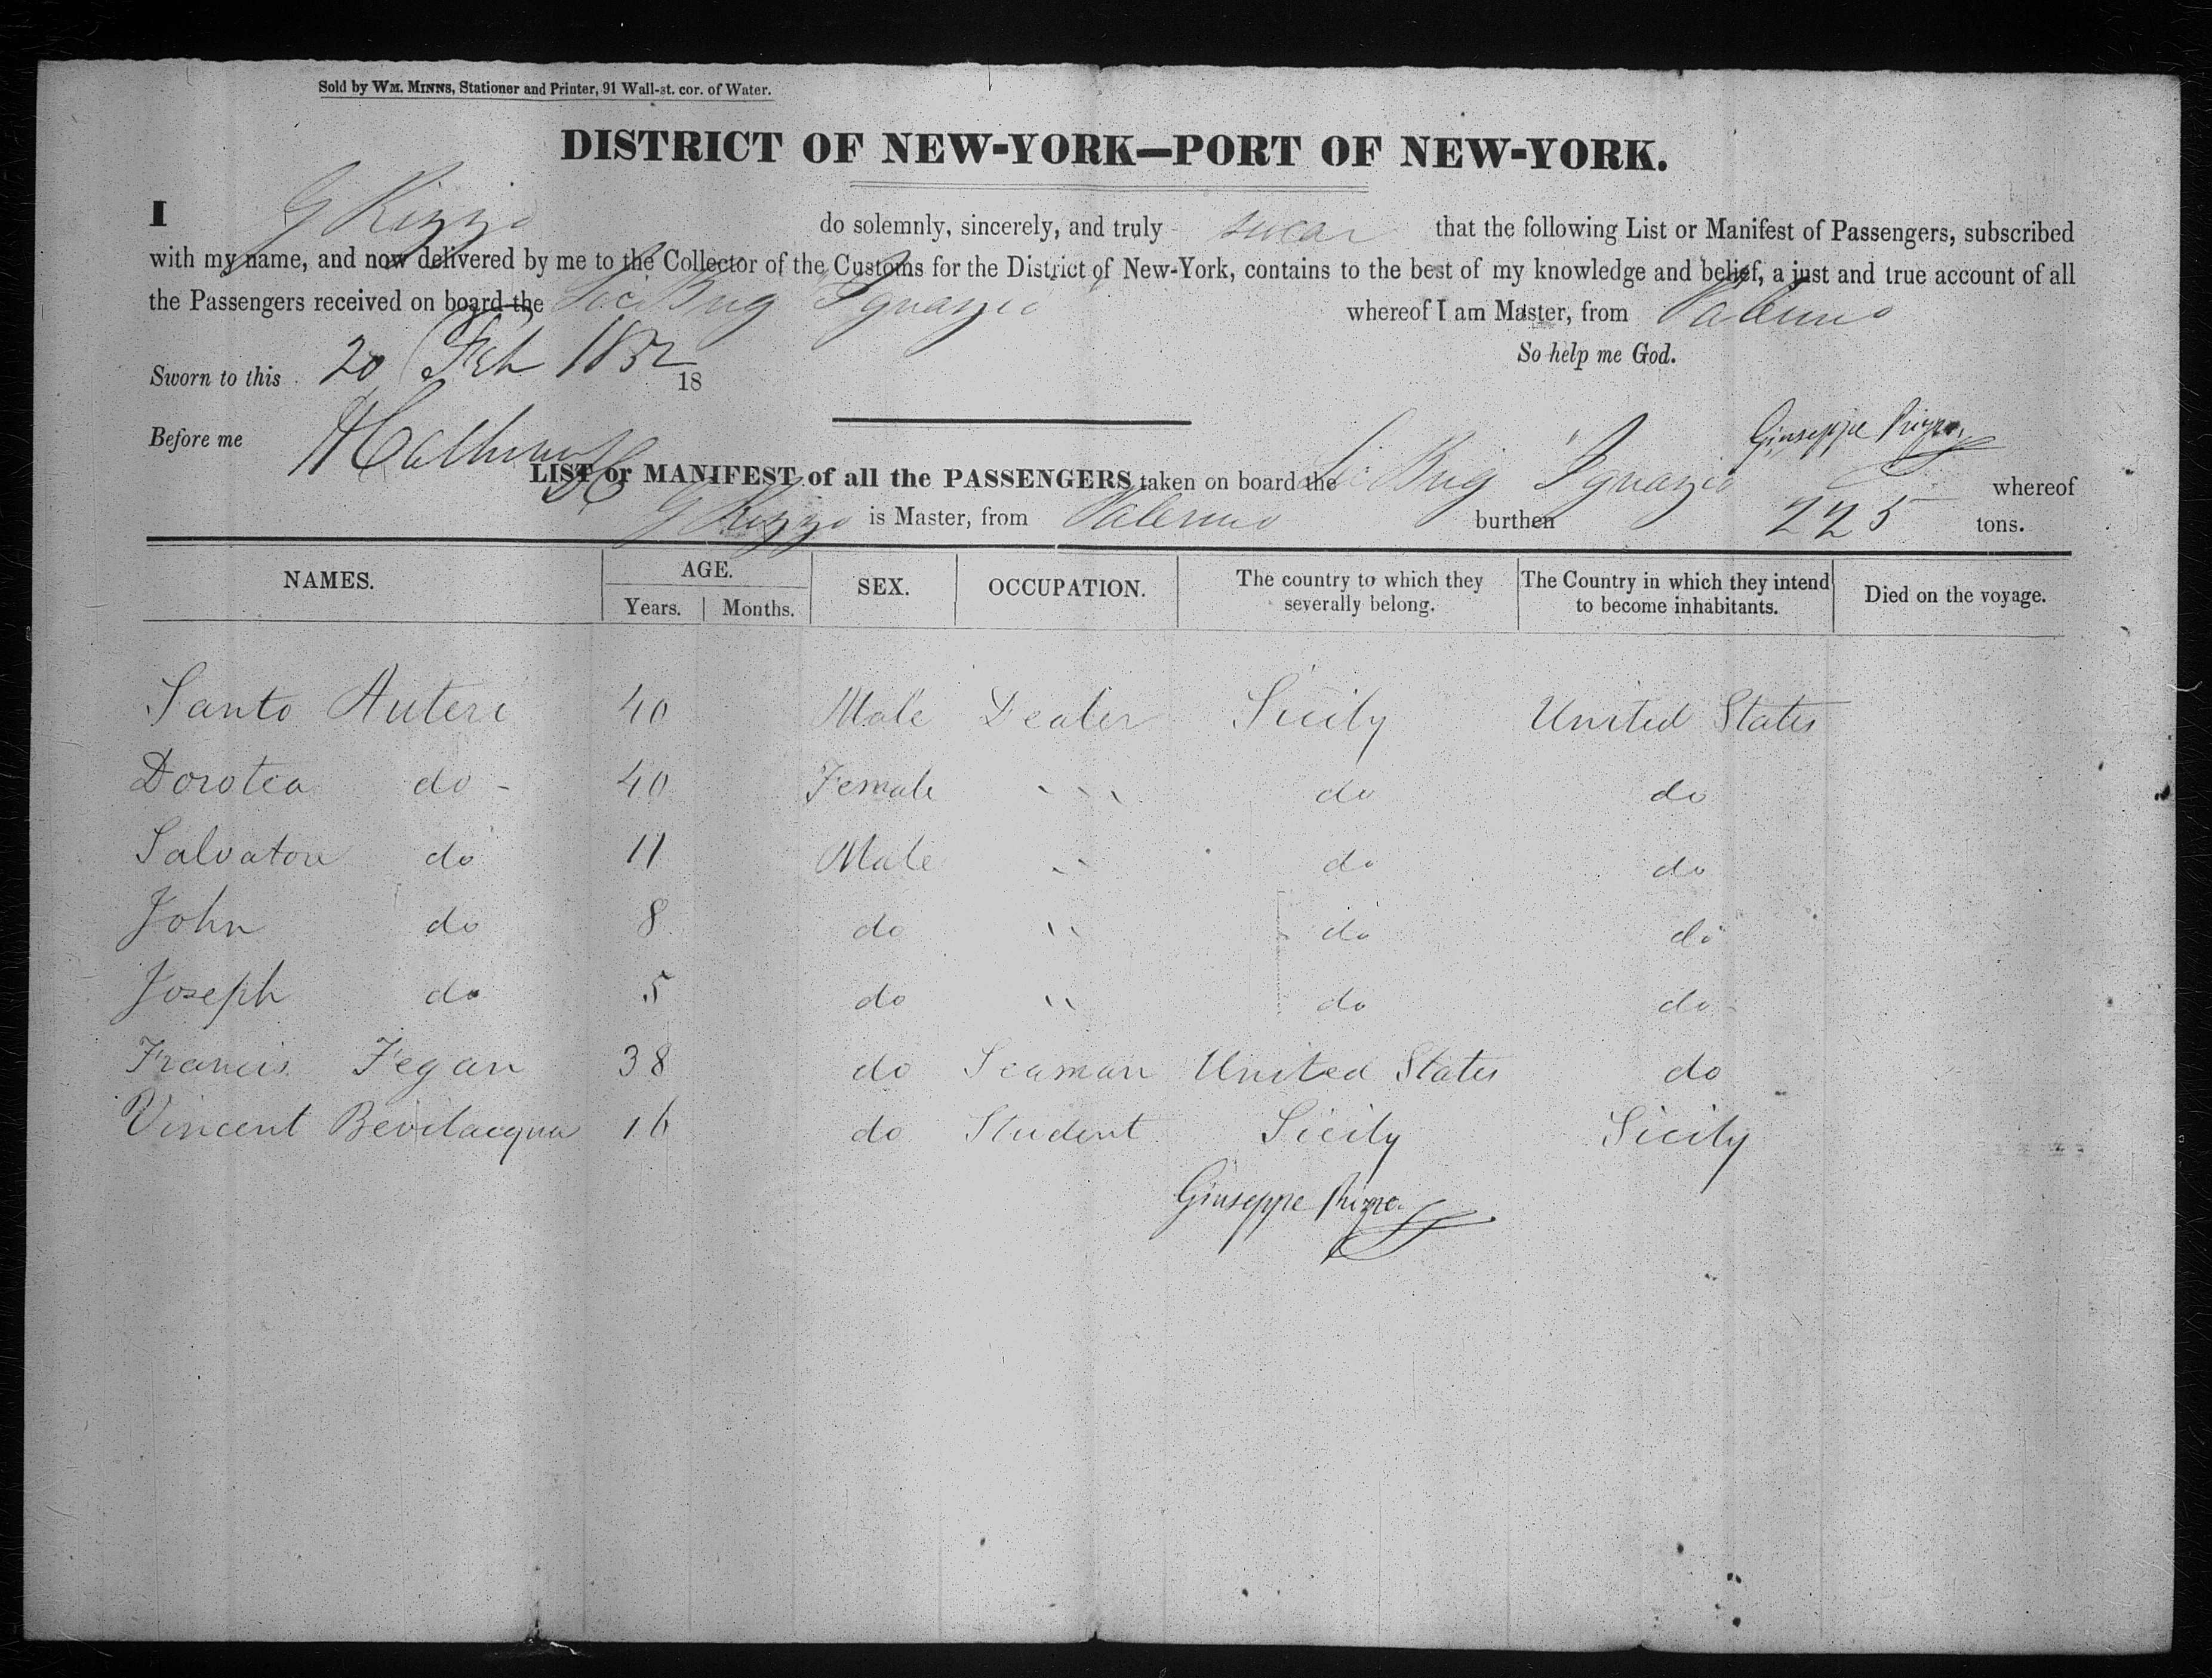 Sold by WM. MINNS, Stationer and Printer, 91 Wall-st. cor. of Water.
DISTRICT OF NEW-YORK—PORT OF NEW-YORK.
I G Rizzo do solemnly, sincerely, and truly swear that the following List or Manifest of Passengers, subscribed
with my name, and now delivered by me to the Collector of the Customs for the District of New-York, contains to the best of my knowledge and belief, a just and true account of all
the Passengers received on board the Brig Ignazio whereof I am Master, from Palermo
So help me God.
Sworn to this 20 Feb 1852 18
Before me
Giuseppe Rizzo
LIST or MANIFEST of all the PASSENGERS taken on board the Brig Ignazio whereof
G Rizzo is Master, from Palermo burthen 225 tons.
NAMES. AGE. SEX. OCCUPATION. The country to which they severally belong. The Country in which they intend to become inhabitants. Died on the voyage.
Years. Months.
Santo Auteri 40 Male Dealer Sicily United States
Dorotea do - 40 Female " do do
Salvatore do 11 Male " do do
John do 8 do " do do
Joseph do 5 do " do do
Francis Fegan 38 do Seaman United States do
Vincent Bevilacqua 16 do Student Sicily Sicily
Giuseppe Rizzo